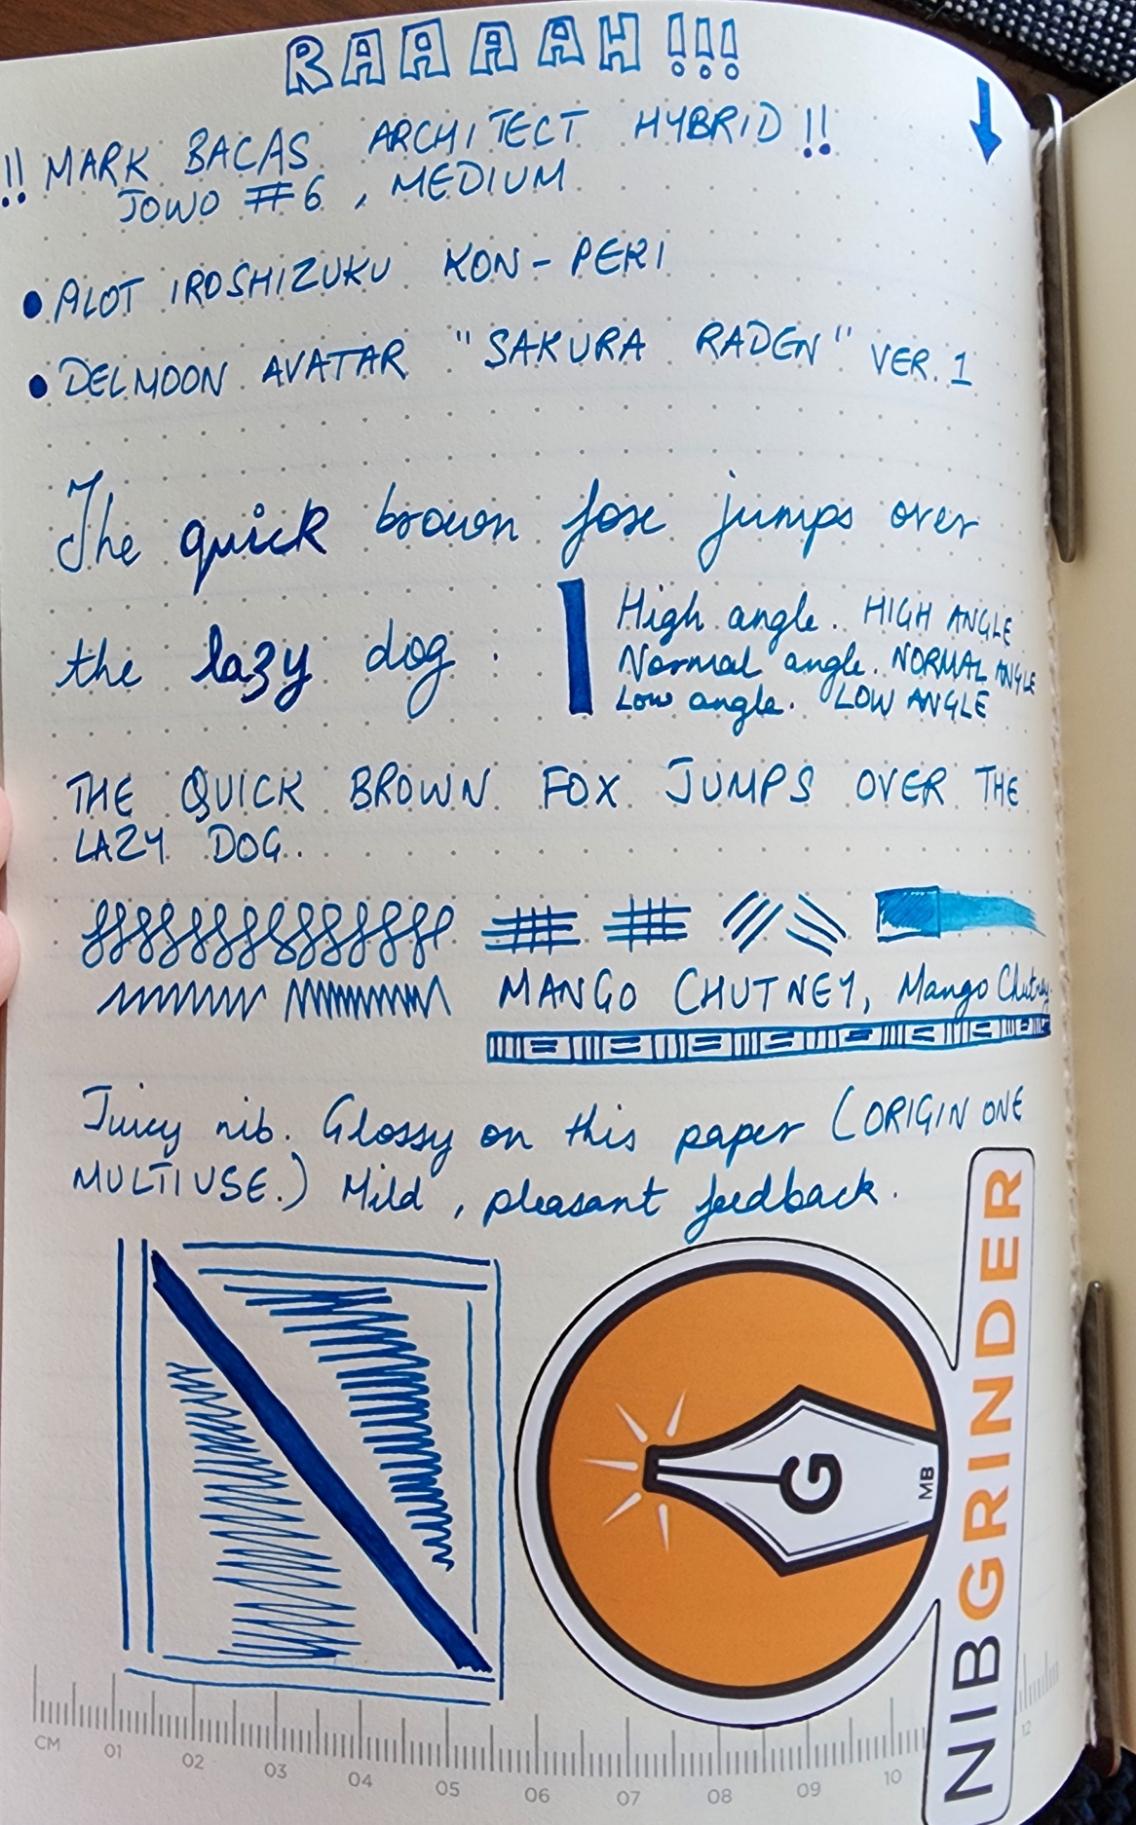 RAAAAH!!!
!! MARK BACAS ARCHITECT HYBRID !!
JOWO #6, MEDIUM
• PILOT IROSHIZUKU KON-PEKI
• DELMOON AVATAR "SAKURA RADEN" VER. 1
The quick brown fox jumps over
the lazy dog.
High angle. HIGH ANGLE
Normal angle. NORMAL ANGLE
Low angle. LOW ANGLE
THE QUICK BROWN FOX JUMPS OVER THE
LAZY DOG.
MANGO CHUTNEY, Mango Chutney.
Juicy nib. Glossy on this paper (ORIGIN ONE
MULTIUSE.) Mild, pleasant feedback.
G
MB
NIBGRINDER
CM 01 02 03 04 05 06 07 08 09 10 12